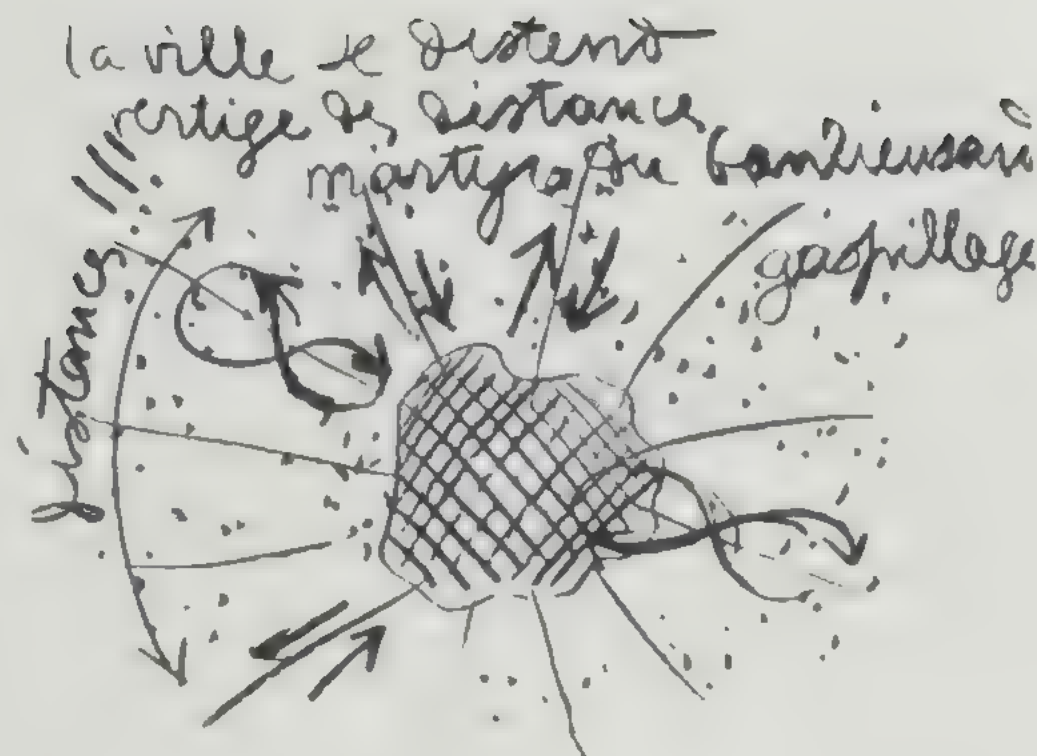 la ville se distend
vertige des distances
martyre du banlieusard
gaspillage
distances !!!!